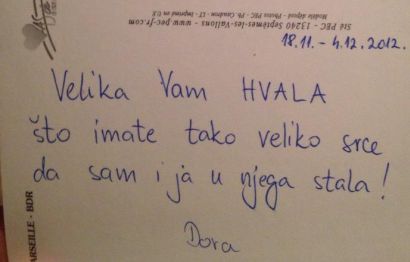 Sté PEC - 13240 - Septèmes-les-Vallons - www.pec-fr.com
Modèle déposé - Photos PEC - Ph. Caudron - LT - Imprimé en U.E
18.11. - 4.12.2012.
Velika Vam HVALA
što imate tako veliko srce
da sam i ja u njega stala!
Dora
MARSEILLE - BDR